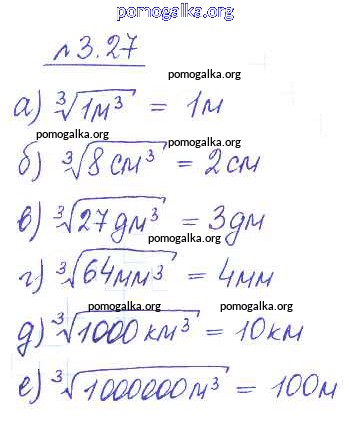 pomogalka.org
№3.27
pomogalka.org
а) ∛1м³ = 1м
pomogalka.org pomogalka.org
б) ∛8см³ = 2см
pomogalka.org
в) ∛27дм³ = 3дм
pomogalka.org
г) ∛64мм³ = 4мм
pomogalka.org pomogalka.org
д) ∛1000км³ = 10км
pomogalka.org
е) ∛1000000м³ = 100м